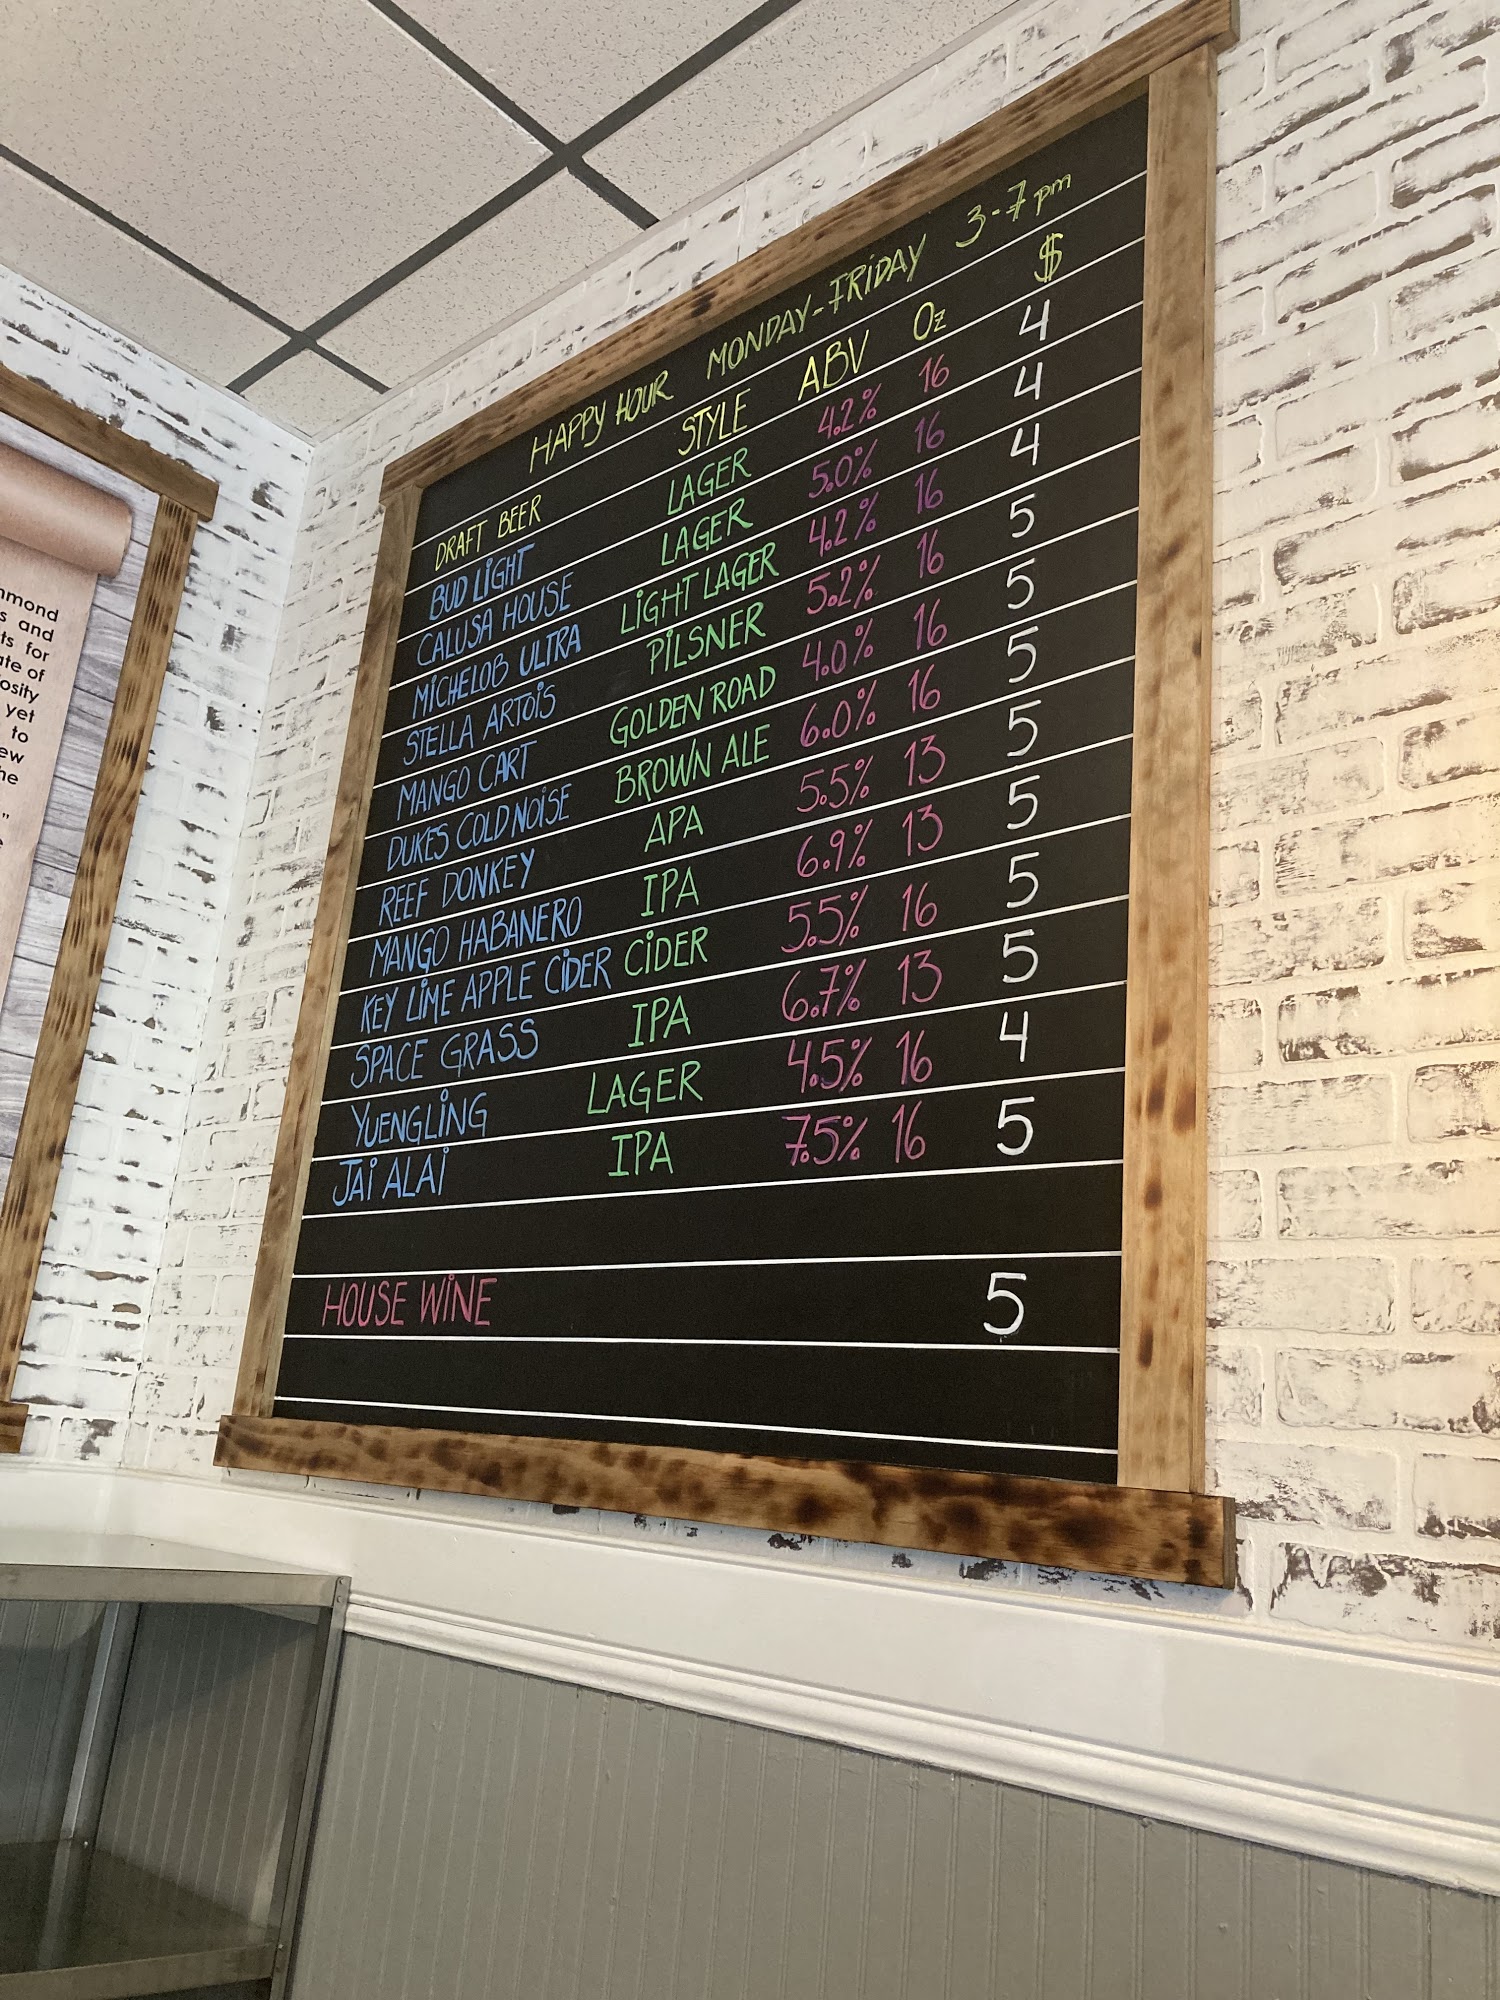 HAPPY HOUR MONDAY-FRiDAY 3-7pm
DRAFT BEER STYLE ABV Oz $
BUD LiGHT LAGER 4.2% 16 4
CALUSA HOUSE LAGER 5.0% 16 4
MiCHELOB ULTRA LiGHT LAGER 4.2% 16 4
STELLA ARTOiS PiLSNER 5.2% 16 5
MANGO CART GOLDEN ROAD 4.0% 16 5
DUKES COLD NOiSE BROWN ALE 6.0% 16 5
REEF DONKEY APA 5.5% 13 5
MANGO HABANERO IPA 6.9% 13 5
KEY LiME APPLE CiDER CiDER 5.5% 16 5
SPACE GRASS IPA 6.7% 13 5
YUENGLiNG LAGER 4.5% 16 4
JAi ALAi IPA 7.5% 16 5
HOUSE WiNE 5
and
for
of
yet
to